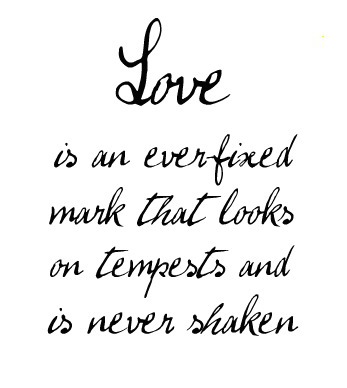 Love
is an ever-fixed
mark that looks
on tempests and
is never shaken